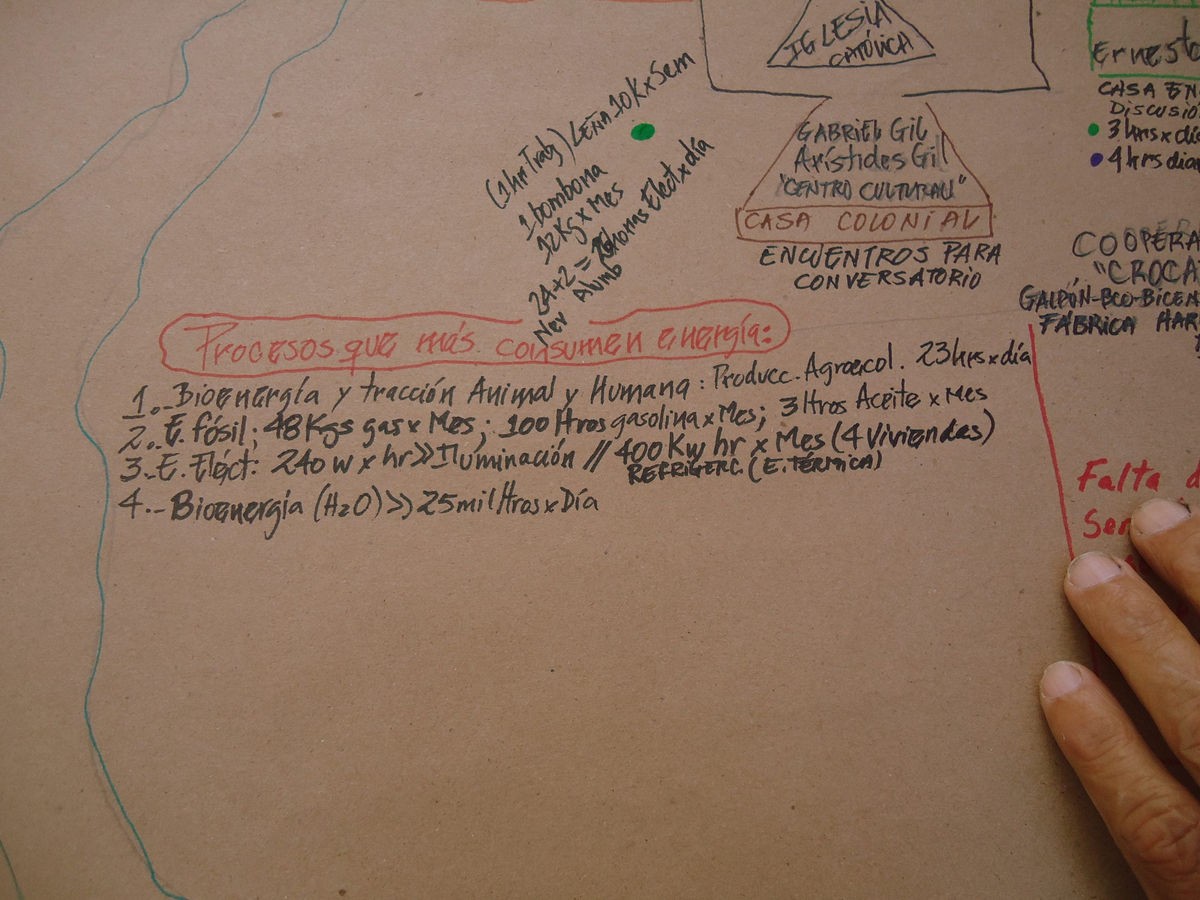 IGLESIA
CATÓLICA
(1 hr Trab) LEÑA 10K x Sem
1 bombona
12 Kg x Mes
24+2 = Horas Elect x día
Nev Alumb
GABRIEL GIL
Arístides Gil
"CENTRO CULTURAL"
CASA COLONIAL
ENCUENTROS PARA
CONVERSATORIO
Ernesto
CASA EN
Discusió
3 hrs x día
4 hrs diar
COOPERA
"CROCA
GALPÓN-BCO-BICEN
FÁBRICA HAR
Procesos que más consumen energía:
1.- Bioenergía y tracción Animal y Humana: Producc. Agroecol. 23 hrs x día
2.- E. fósil; 48 Kgs gas x Mes; 100 ltros gasolina x Mes; 3 ltros Aceite x Mes
3.- E. Eléct: 240 w x hr >> Iluminación // 400 Kw hr x Mes (4 Viviendas)
REFRIGERC. (E. TÉRMICA)
4.- Bioenergía (H2O) >> 25 mil ltros x Día
Falta d
Ser